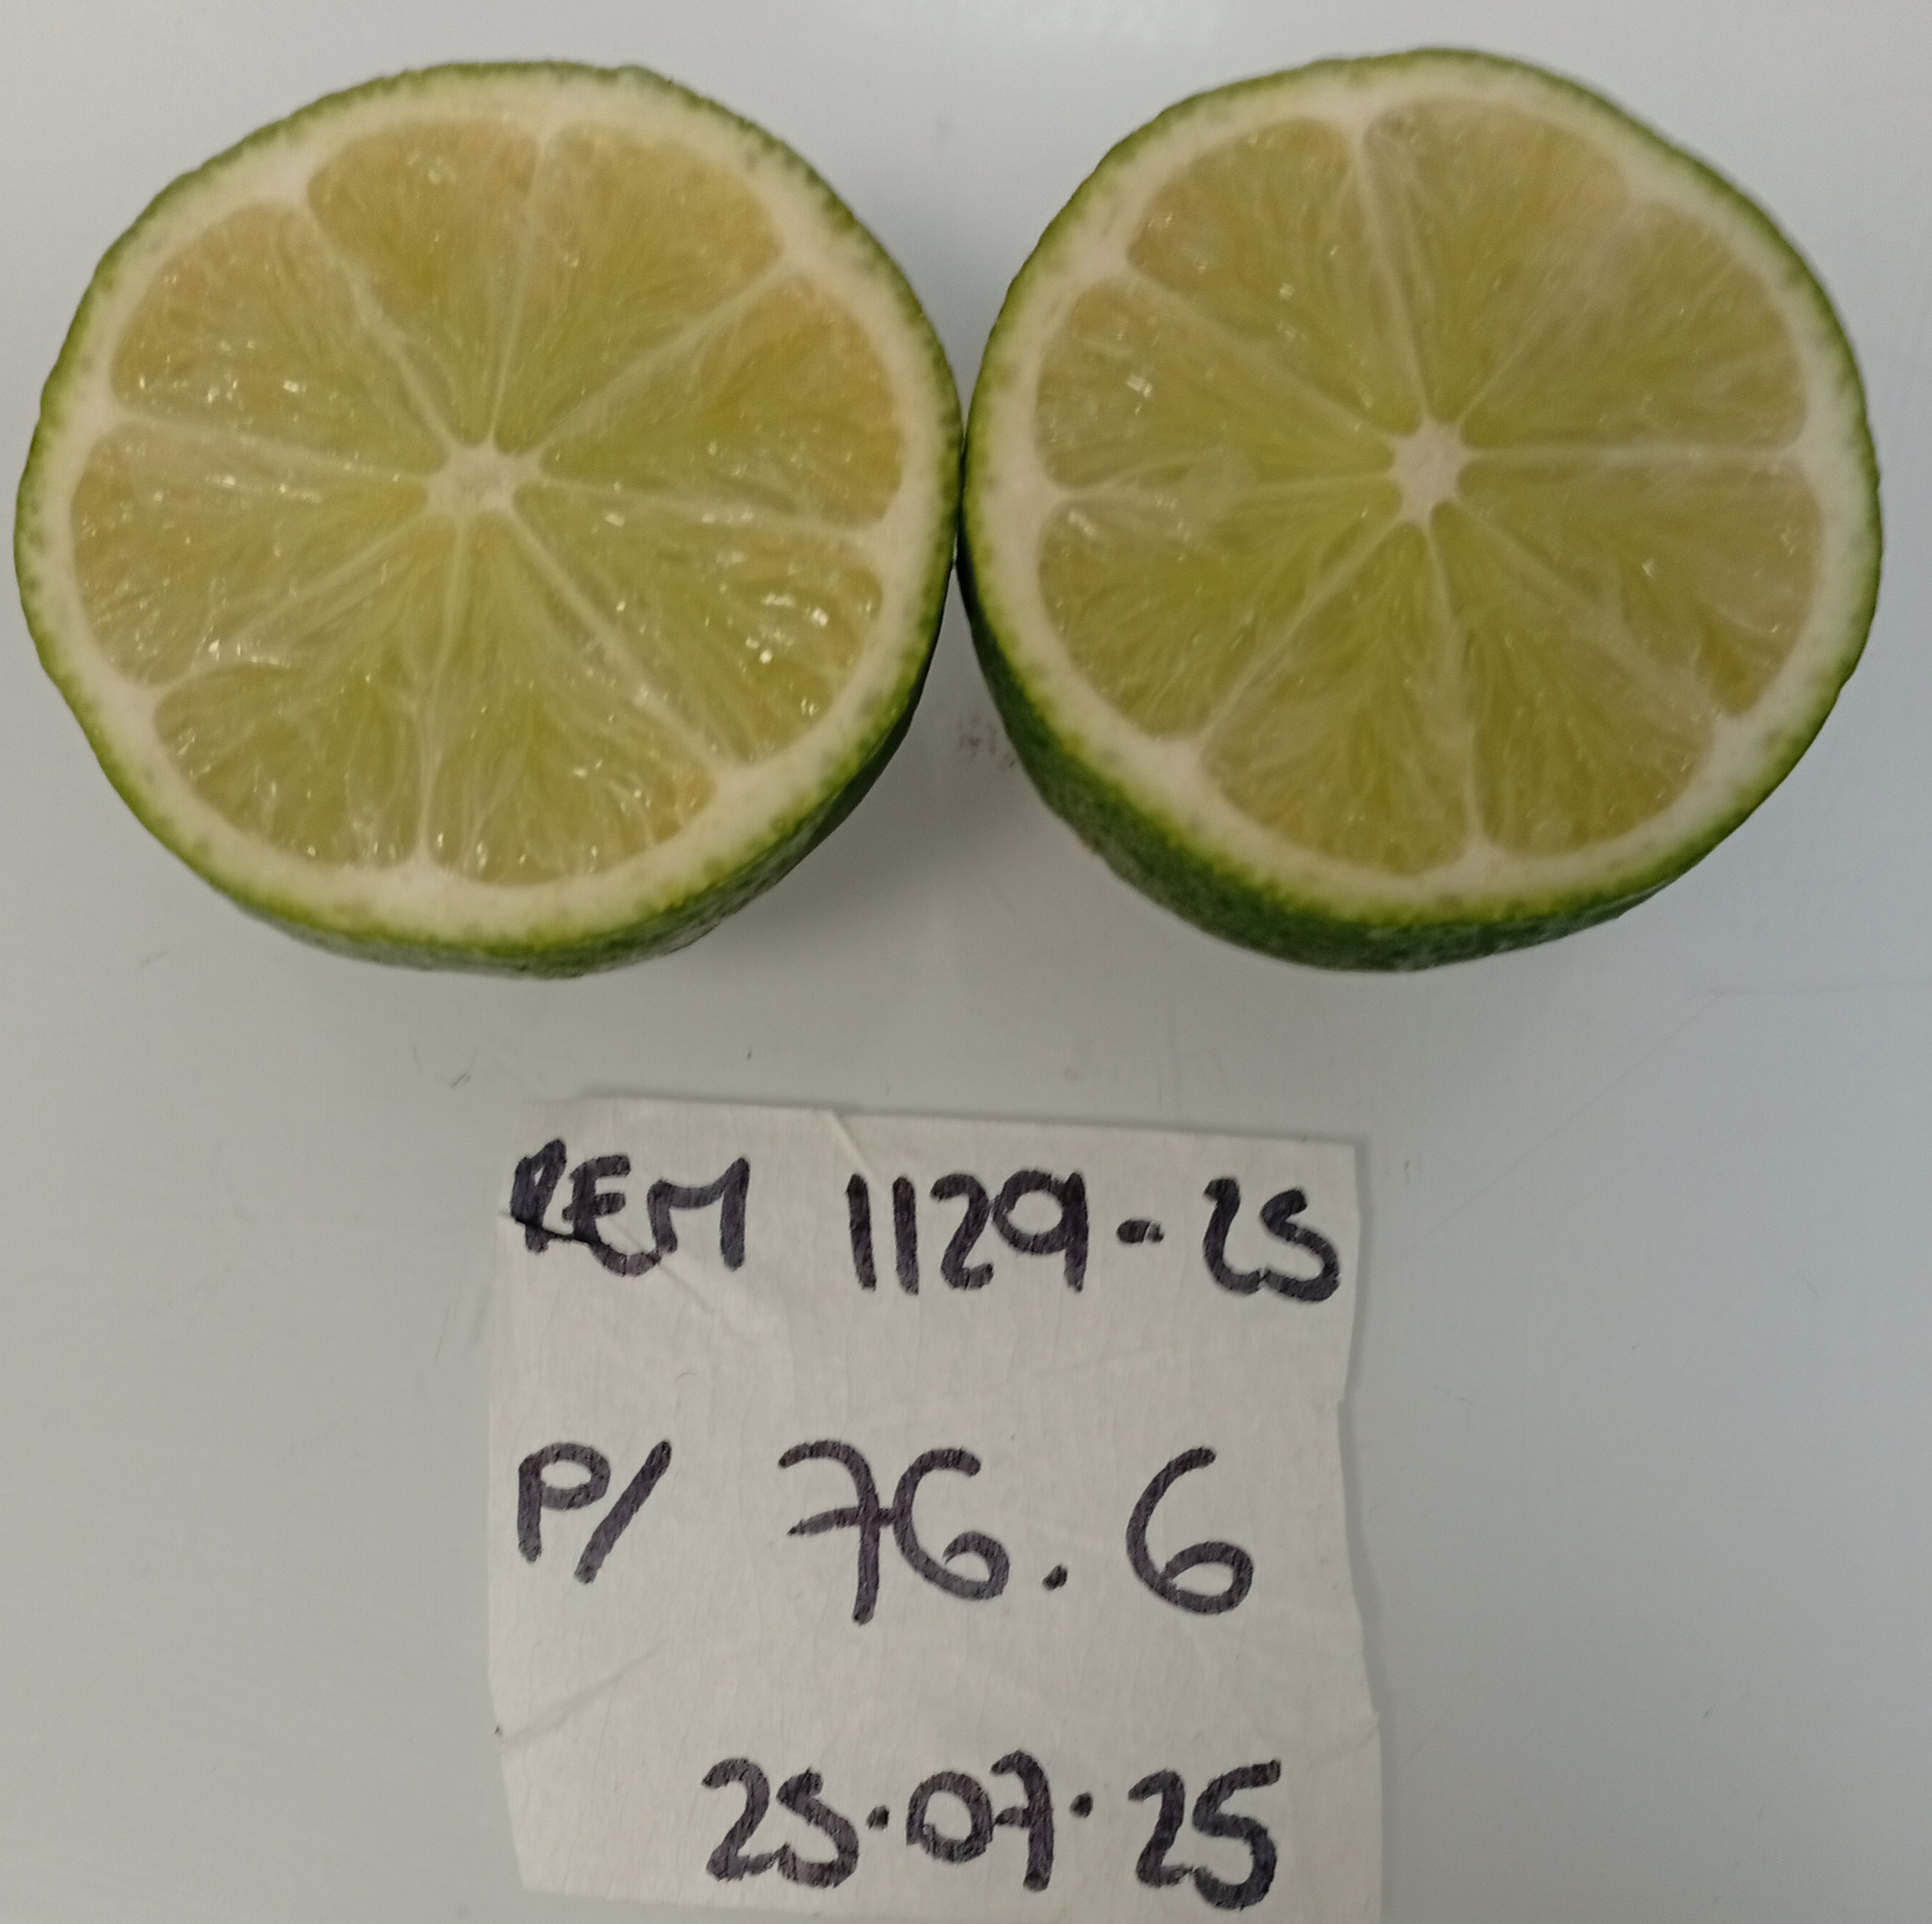 REM 1129-25
P/ 76.6
25.07.25